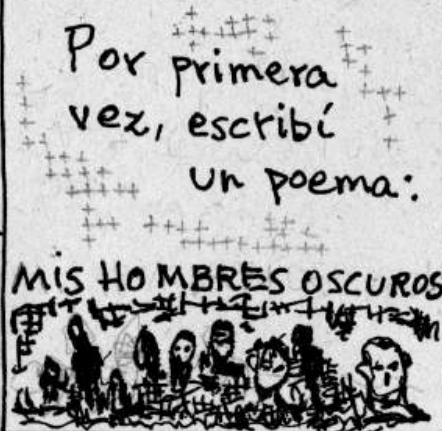 Por primera
vez, escribí
un poema:
MIS HOMBRES OSCUROS